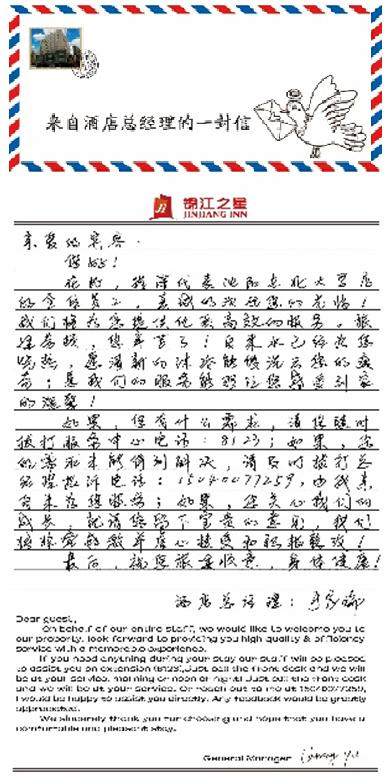 来自酒店总经理的一封信
锦江之星
JINJIANG INN
亲爱的宾客:
您好!
在此,我谨代表沈阳东北大
的全体员工,真诚的欢迎您的光临!
我们将为您提供优质高效的服务。旅
途劳顿,您辛苦了!自来水已给您
烧热,愿清新的沐浴能够洗去您的疲
劳;愿我们的服务能够让您感受到家
的温馨!
如果,您有什么需求,请您随时
拨打服务中心电话:8123;如果,您
的需求未能得到解决,请及时拨打总
经理投诉电话:15040077259,由我亲
自来为您服务;如果,您关心我们的
成长,就请您留下宝贵的意见,我们
将非常感激并虚心接受和积极整改!
最后,祝您旅途顺意,身体健康!
酒店总经理:
Dear guest,
On behalf of our entire staff, we would like to welcome you to
our property. look forward to providing you high quality & efficiency
service with a memorable experience.
If you need anything during your stay our staff will be pleased
to assist you on extension (8123).Just call the front desk and we will
be at your service. morning or noon or night! Just call the front desk
and we will be at your service. Or reach out to me at 15040077259,
I would be happy to assist you directly. Any feedback would be greatly
appreciated.
We sincerely thank you for choosing and hope that you have a
comfortable and pleasant stay.
General Manager